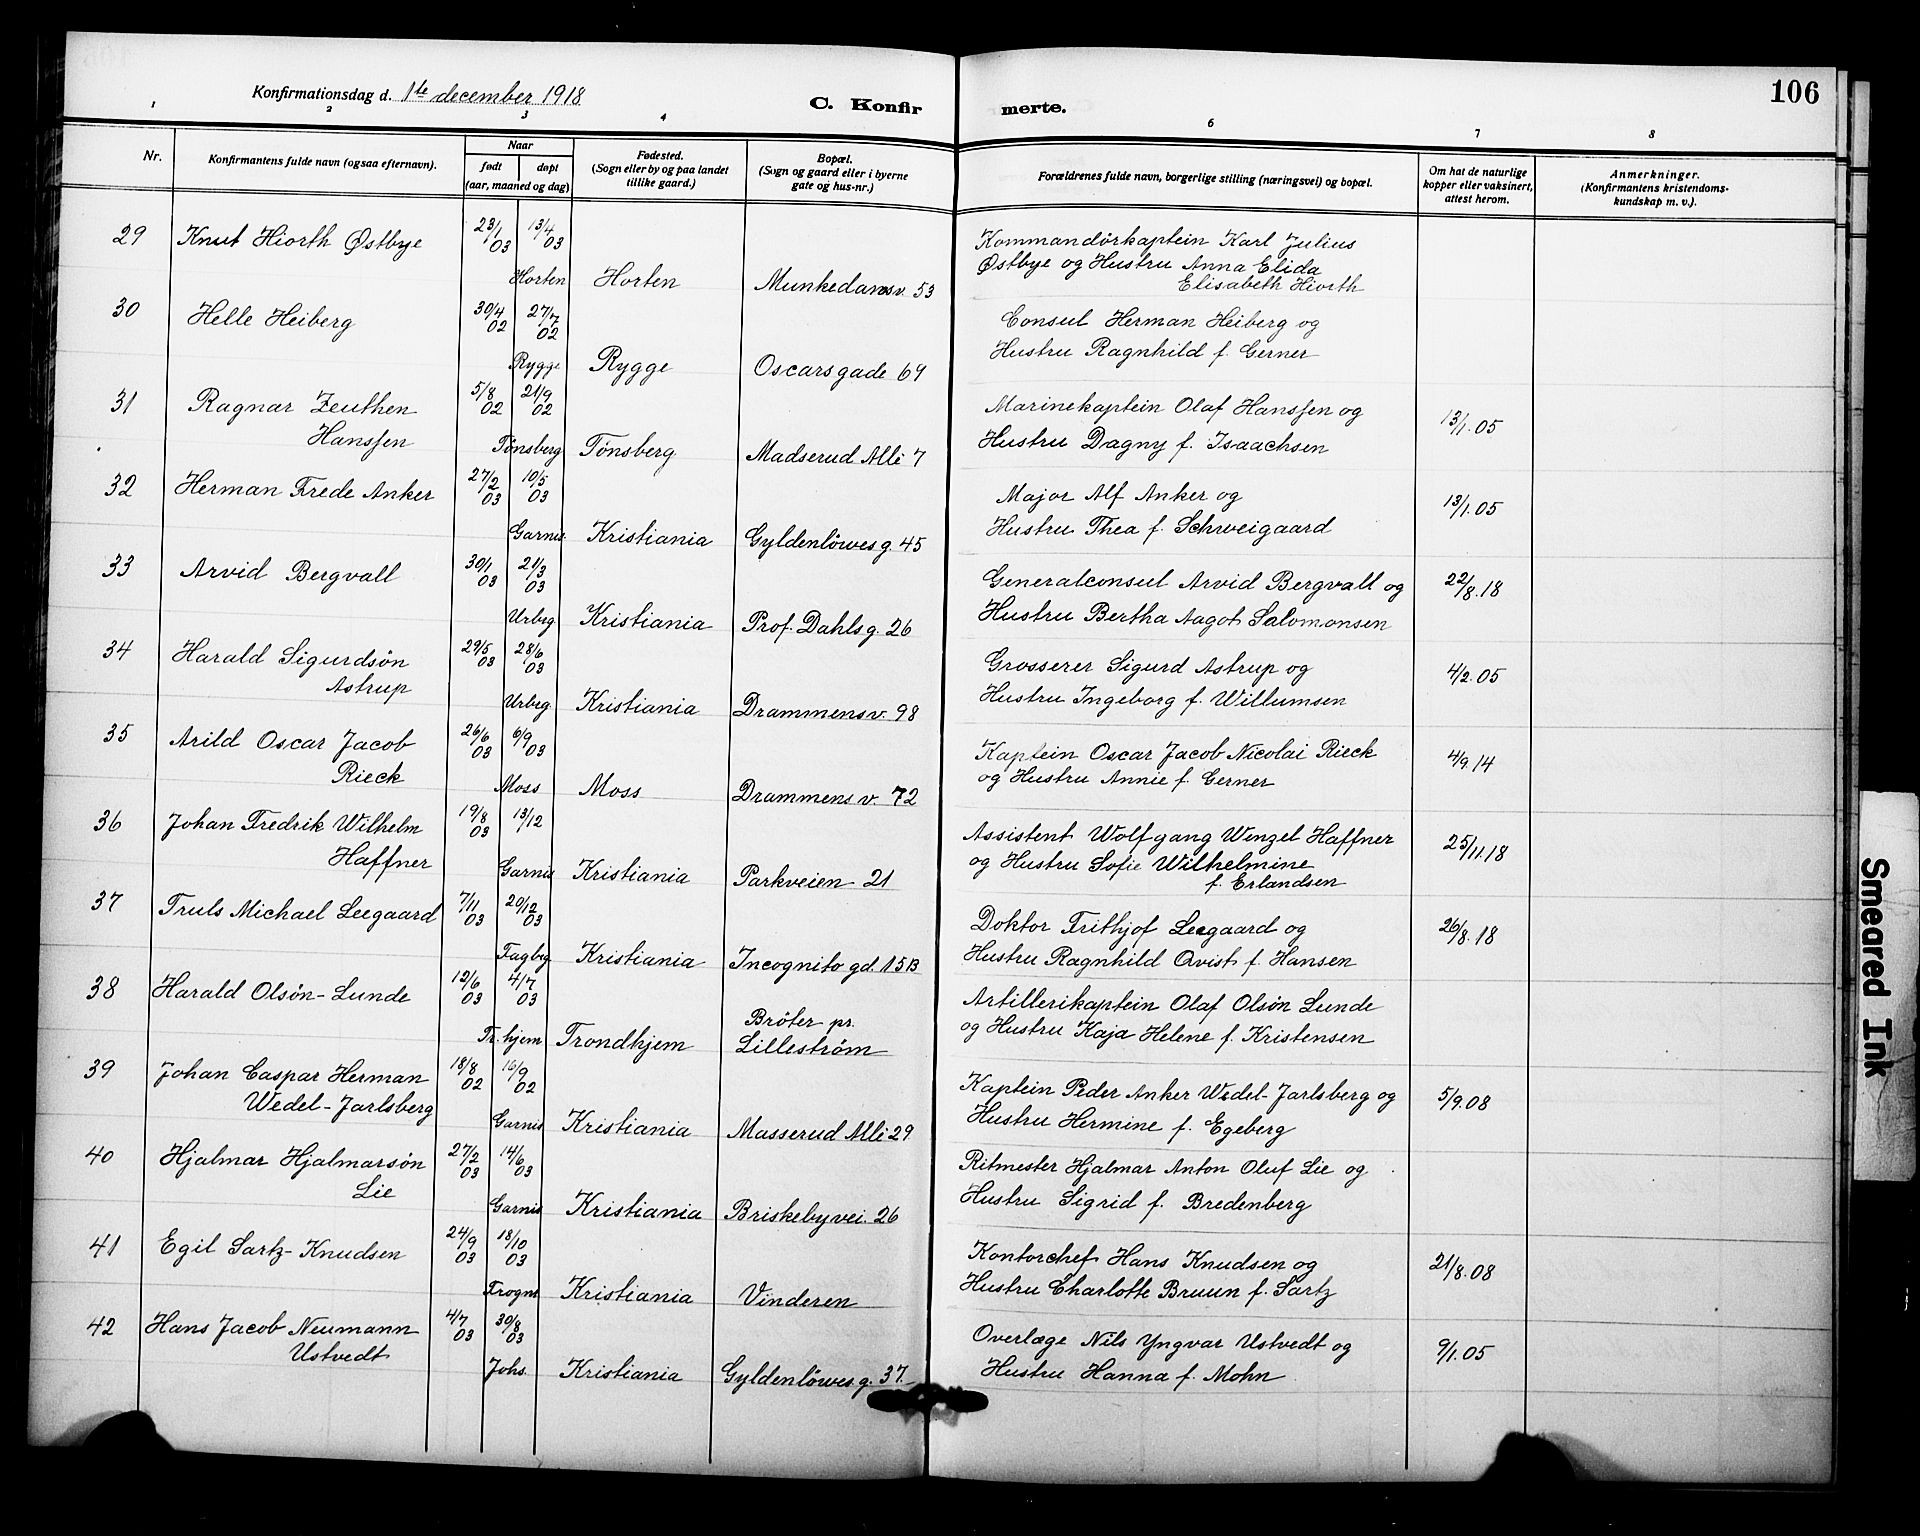 106
Konfirmationsdag d. 1ste december 1918
C. Konfir merte.
1 2 3 4 6 7 8
Nr.
Konfirmantens fulde navn (ogsaa efternavn).
Naar
født døpt
(aar, maaned og dag)
Fødested.
(Sogn eller by og paa landet
tillike gaard.)
Bopæl.
(Sogn og gaard eller i byerne
gate og hus-nr.)
Forældrenes fulde navn, borgerlige stilling (næringsvei) og bopæl.
Om hat de naturlige
kopper eller vaksinert,
attest herom.
Anmerkninger.
(Konfirmantens kristendoms-
kundskap m. v.).
29 Knut Hiorth Østbye 23/1 03 13/4 03 Kommandörkaptein Karl Julius
Østbye og Hustru Anna Elida
Horten Horten Munkedamsv. 53 Elisabeth Hiorth
30 Helle Heiberg 30/4 02 27/7 02 Consul Herman Heiberg og
Rygge Rygge Oscarsgade 69 Hustru Ragnhild f. Gerner
31 Ragnar Zeuthen 5/8 02 21/9 02 Marinekaptein Olaf Hanssen og 13/1.05
Hanssen Tönsberg Tönsberg Madserud Allé 7 Hustru Dagny f. Isaachsen
32 Herman Frede Anker 27/2 03 10/5 03 Major Alf Anker og 13/1.05
Garnis. Kristiania Gyldenlöwesg. 45 Hustru Thea f. Schweigaard
33 Arvid Bergvall 30/1 03 21/3 03 Generalconsul Arvid Bergvall og 22/8.18
Urbg Kristiania Prof. Dahlsg. 26 Hustru Bertha Aagot Salomonsen
34 Harald Sigurdsön 29/5 03 28/6 03 Grosserer Sigurd Astrup og 4/2.05
Astrup Urbg. Kristiania Drammensv. 98 Hustru Ingeborg f. Willumsen
35 Arild Oscar Jacob 26/6 03 6/9 03 Kaptein Oscar Jacob Nicolai Rieck 4/9.14
Rieck Moss Moss Drammensv. 72 og Hustru Annie f. Gerner
36 Johan Fredrik Wilhelm 19/8 03 13/12 Assistent Wolfgang Wenzel Haffner 25/11.18
Haffner Garnis Kristiania Parkveien 21 og Hustru Sofie Wilhelmine
f. Erlandsen
37 Truls Michael Leegaard 7/11 03 20/12 03 Doktor Frithjof Leegaard og 26/8.18
Fagbg Kristiania Incognito gd. 15B Hustru Ragnhild Qvist f. Hansen
38 Harald Olsön-Lunde 12/6 03 4/7 03 Artillerikaptein Olaf Olsön Lunde
Bröter pr.
Tr.hjem Trondhjem Lilleström og Hustru Kaja Helene f. Kristensen
39 Johan Caspar Herman 18/8 02 16/9 02 Kaptein Peder Anker Wedel-Jarlsberg og 5/9.08
Wedel-Jarlsberg Garnis Kristiania Masserud Allé 29 Hustru Hermine f. Egeberg
40 Hjalmar Hjalmarsön 27/2 03 14/6 03 Ritmester Hjalmar Anton Oluf Lie og
Lie Garnis Kristiania Briskebyvei. 26 Hustru Sigrid f. Bredenberg
41 Egil Sartz-Knudsen 24/9 03 18/10 03 Kontorchef Hans Knudsen og 21/8.08
Frogn Kristiania Vinderen Hustru Charlotte Bruun f. Sartz
42 Hans Jacob Neumann 4/7 03 30/8 03 Overlæge Nils Yngvar Ustvedt og 9/1.05
Ustvedt Johs. Kristiania Gyldenlöwesg. 37. Hustru Hanna f. Mohn
Smeared Ink